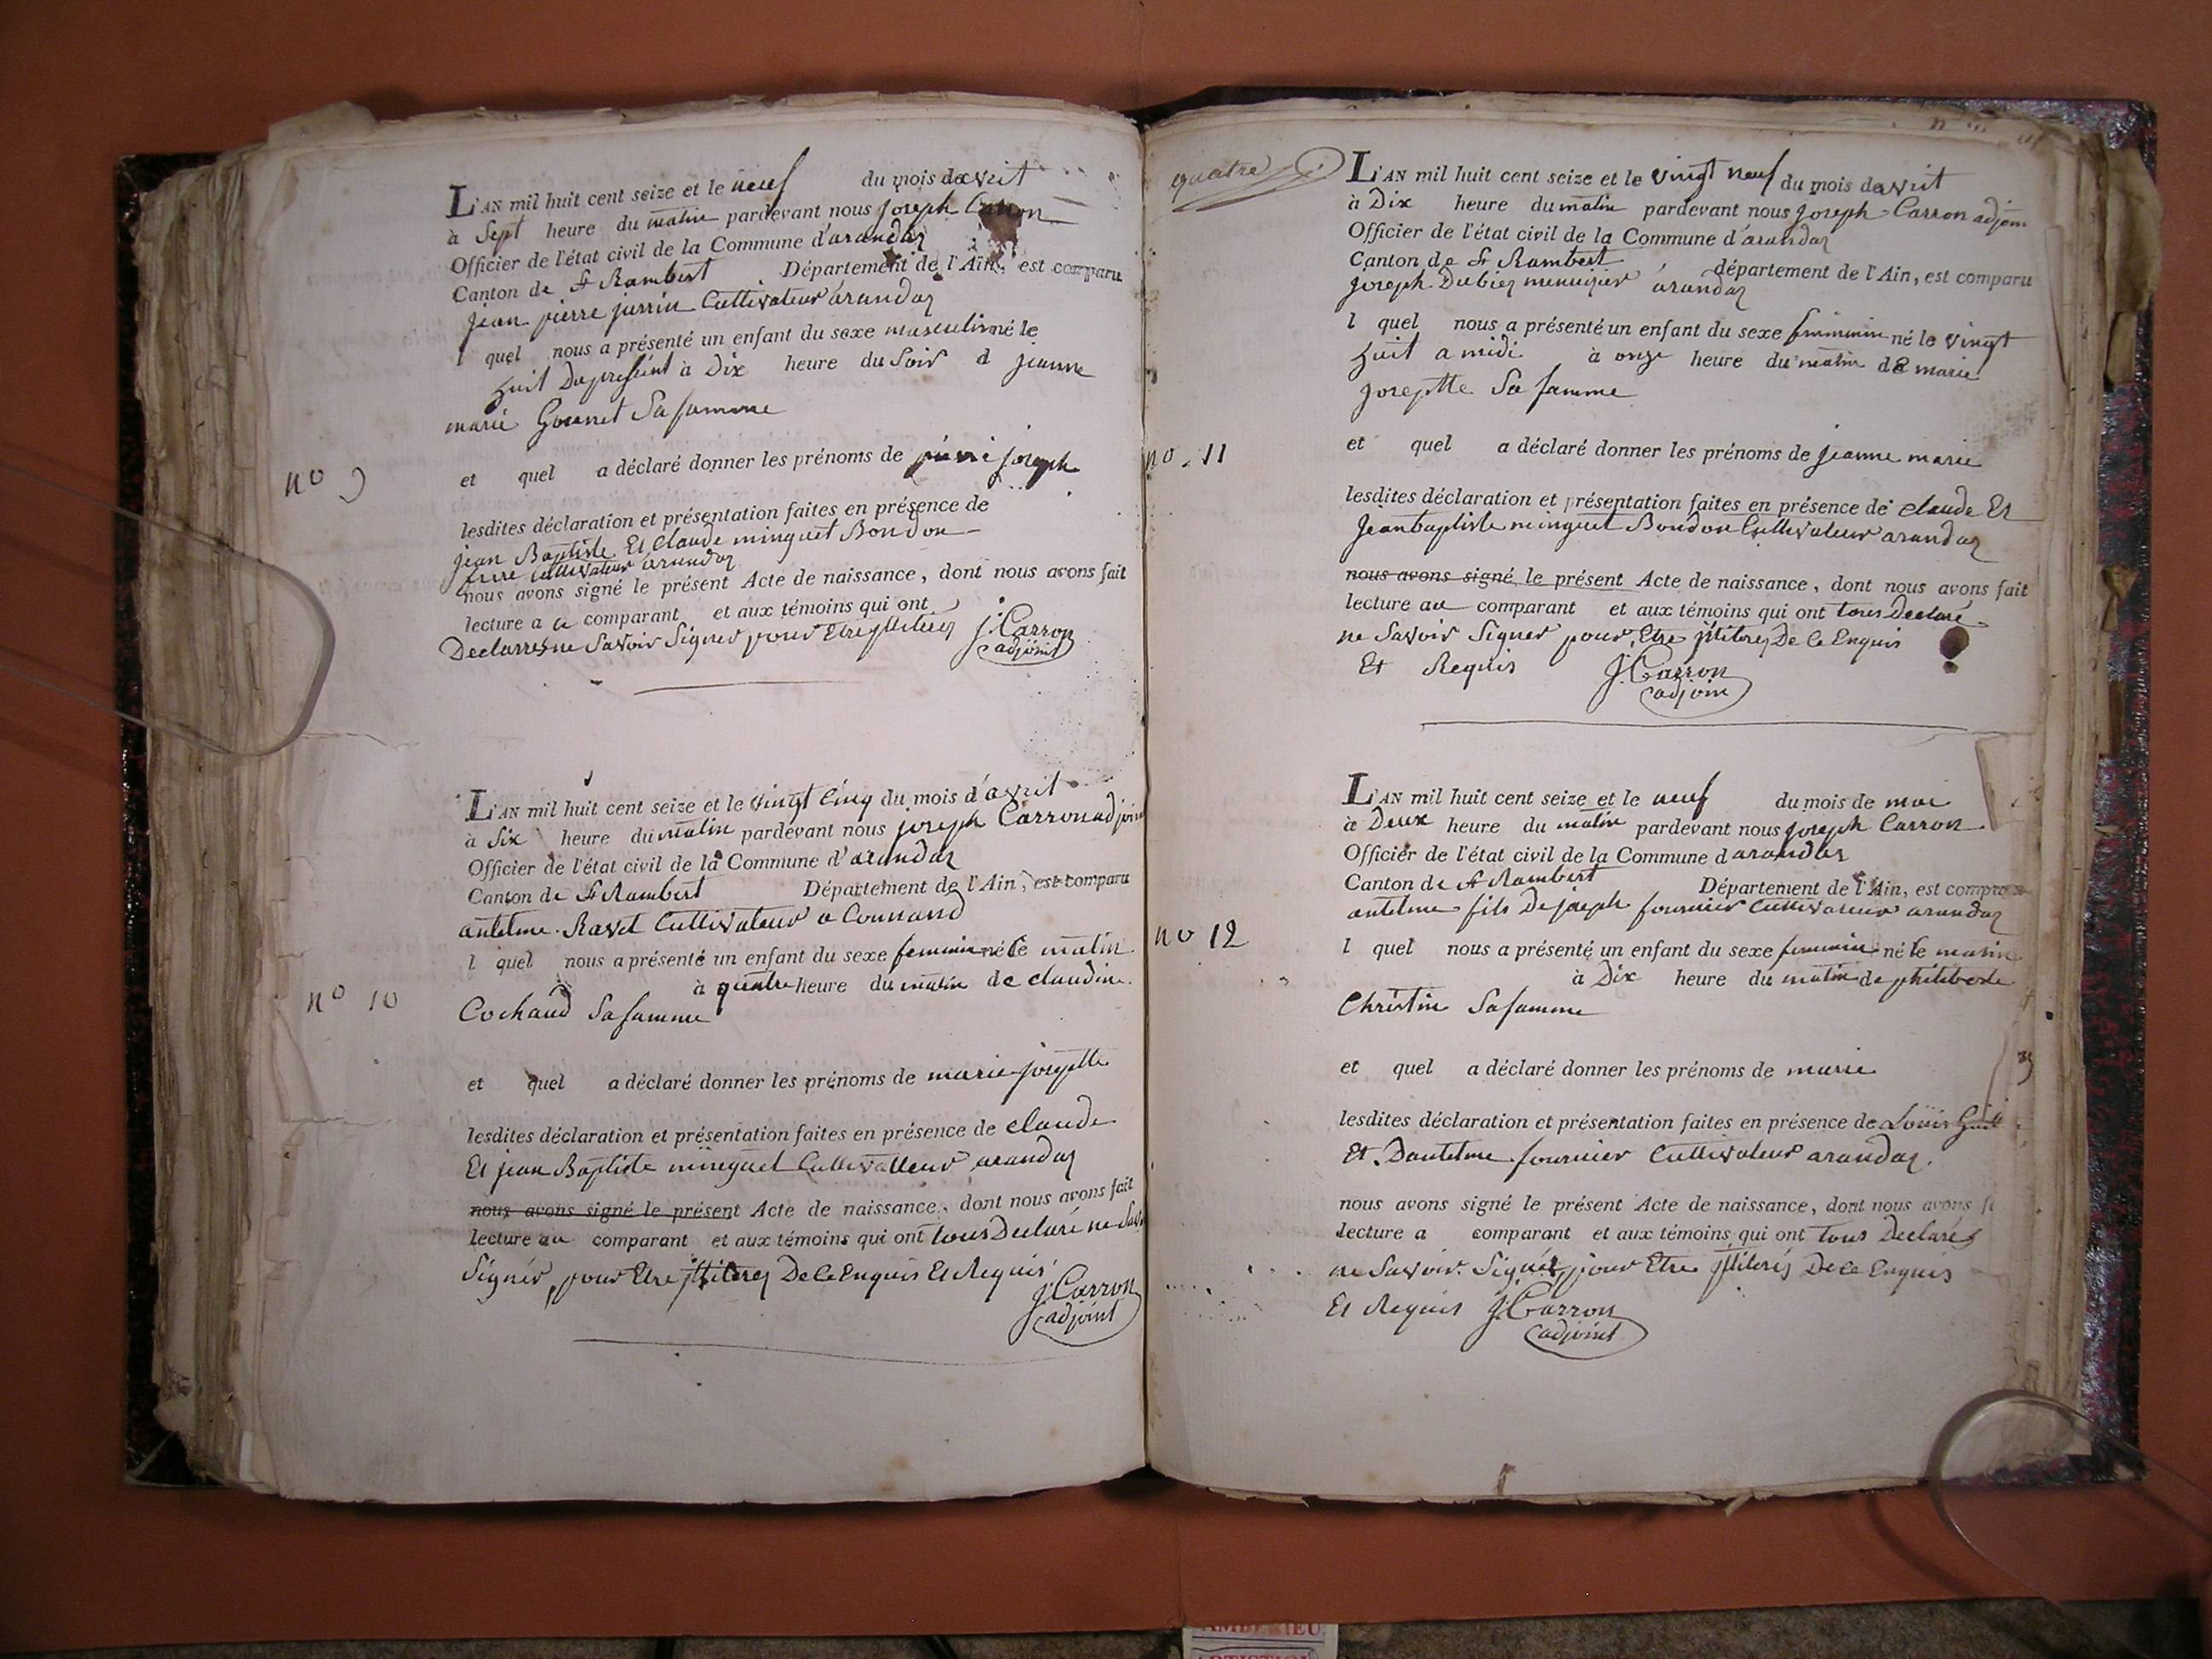 L'AN mil huit cent seize et le neuf du mois davrit
à Sept heure du matin pardevant nous joseph Carron
Officier de l'état civil de la Commune d'arandas
Canton de St Rambert Département de l'Ain, est comparu
jean pierre jurrin Cultivateur arandas
l quel nous a présenté un enfant du sexe masculin né le
huit Du present à Dix heure du Soir d jeanne
marie Gounet Sa famme
no 9
et quel a déclaré donner les prénoms de pierre joseph
lesdites déclaration et présentation faites en présence de
jean Baptiste Et Claude minguet Bondon
frere Cultivateur arandas
nous avons signé le présent Acte de naissance, dont nous avons fait
lecture a comparant et aux témoins qui ont
Declarres ne Savoir Signer pour Etre
J. Carron
adjoint
L'AN mil huit cent seize et le vingt Cinq du mois d'avrit
à Six heure du matin pardevant nous joseph Carron adjoint
Officier de l'état civil de la Commune d'arandas
Canton de St Rambert Département de l'Ain, est comparu
antelme Ravet Cultivateur a Connand
l quel nous a présenté un enfant du sexe feminin né le matin
à quatre heure du matin de claudine
no 10
Cochaud Sa famme
et quel a déclaré donner les prénoms de marie josephte
lesdites déclaration et présentation faites en présence de claude
Et jean Baptiste minguet Cultivatteur arandas
nous avons signé le présent Acte de naissance, dont nous avons fait
lecture au comparant et aux témoins qui ont tous Declaré ne Savoir
Signer pour Etre Illiteres De Ce Enquis Et Requis
J. Carron
adjoint
quatre
L'AN mil huit cent seize et le vingt neuf du mois davrit
à Dix heure du matin pardevant nous joseph Carron adjoin
Officier de l'état civil de la Commune d'arandas
Canton de St Rambert département de l'Ain, est comparu
joseph Dubiez menuizier arandas
l quel nous a présenté un enfant du sexe feminin né le vingt
huit a midi à onze heure du matin de marie
josephte Sa famme
no. 11
et quel a déclaré donner les prénoms de jeanne marie
lesdites déclaration et présentation faites en présence de claude Et
Jean baptiste minguet Bondon Cultivateur arandas
nous avons signé le présent Acte de naissance, dont nous avons fait
lecture au comparant et aux témoins qui ont tous Declaré
ne Savoir Signer pour Etre De Ce Enquis
Et Requis J. Carron
adjoin
L'AN mil huit cent seize et le neuf du mois de mai
à Deux heure du matin pardevant nous joseph Carron
Officier de l'état civil de la Commune d arandas
Canton de St Rambert Département de l'Ain, est comparu
antelme fils De joseph fournier Cultivateur arandas
no 12
l quel nous a présenté un enfant du sexe feminin né le matin
à Dix heure du matin de philiberte
Christin Sa famme
et quel a déclaré donner les prénoms de marie
lesdites déclaration et présentation faites en présence de Louis
Et Dantelme fournier Cultivateur arandas.
nous avons signé le présent Acte de naissance, dont nous avons
lecture a comparant et aux témoins qui ont tous Declarés
ne Savoir Signer pour Etre Illiterés De ce Enquis
Et Requis J. Carron
adjoint